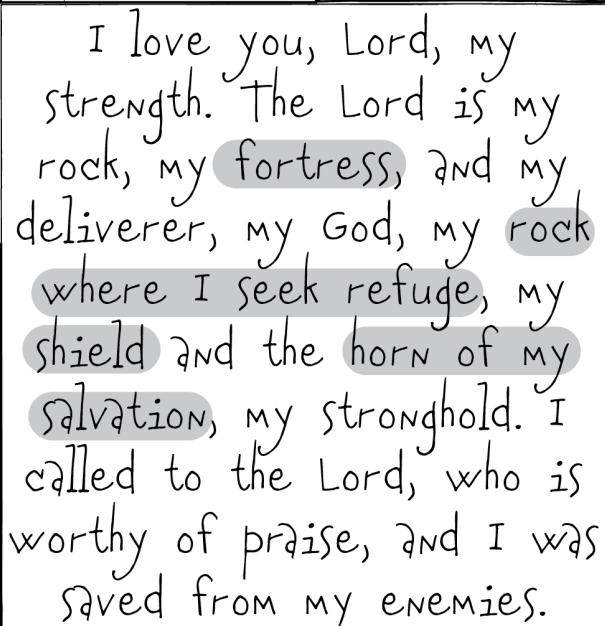 I love you, Lord, my
strength. The Lord is my
rock, my fortress, and my
deliverer, my God, my rock
where I seek refuge, my
shield and the horn of my
salvation, my stronghold. I
called to the Lord, who is
worthy of praise, and I was
saved from my enemies.